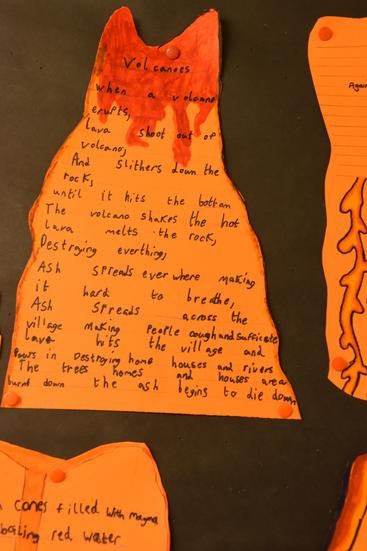 Volcanoes
when a volcano
erupts,
lava shoot out of
volcano,
And slithers down the
rock,
until it hits the bottom
The volcano shakes the hot
lava melts the rock,
Destroying everthing,
Ash spreads ever where making
it hard to breathe,
Ash spreads across the
village making people cough and Sufficate
lava hits the village and
Pours in Destroying home houses and rivers
The trees homes and houses area
burnt down the ash begins to die down
Again
cones filled with magma
boiling red water